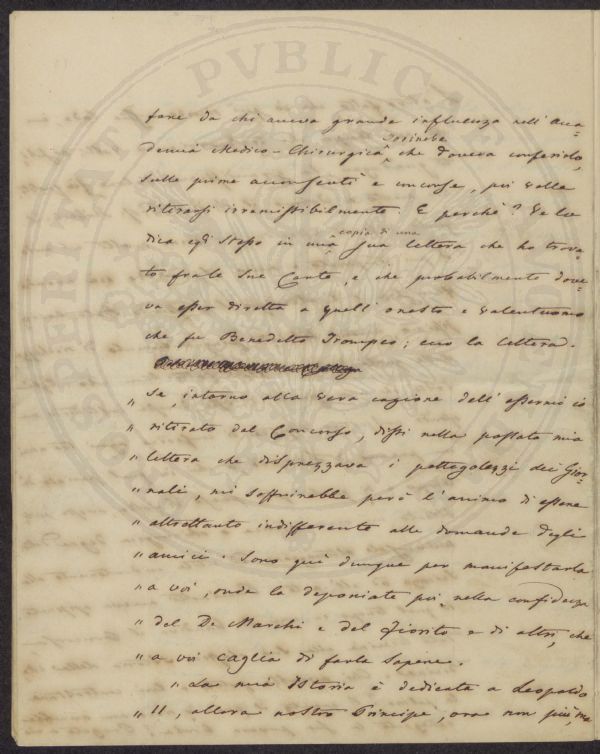 fare da chi aveva grande influenza nell'Acca=
demia Medico-Chirurgica Torinese che doveva conferirlo,
sulle prime acconsentì e concorse, poi volle
ritirarsi irremissibilmente. E perchè? Ve lo
dica egli stesso in una copia di una sua lettera che ho trova=
to fra le sue Carte, e che probabilmente dove=
va esser diretta a quell'onesto e valentuomo
che fu Benedetto Trompeo; ecco la lettera.
„ Se, intorno alla vera cagione dell'essermi io
„ ritirato dal Concorso, dissi nella passata mia
„ lettera che disprezzava i pettegolezzi dei Gior=
„ nali, mi soffrirebbe però l'animo di essere
„ altrettanto indifferente alle domande degli
„ amici. Sono quì dunque per manifestarla
„ a voi, onde la deponiate poi nella confidenza
„ del De Marchi e del Fiorito e di altri, che
„ a voi caglia di farla sapere.
„ „ La mia Istoria è dedicata a Leopoldo
„ II, allora nostro Principe, ora non più, ma